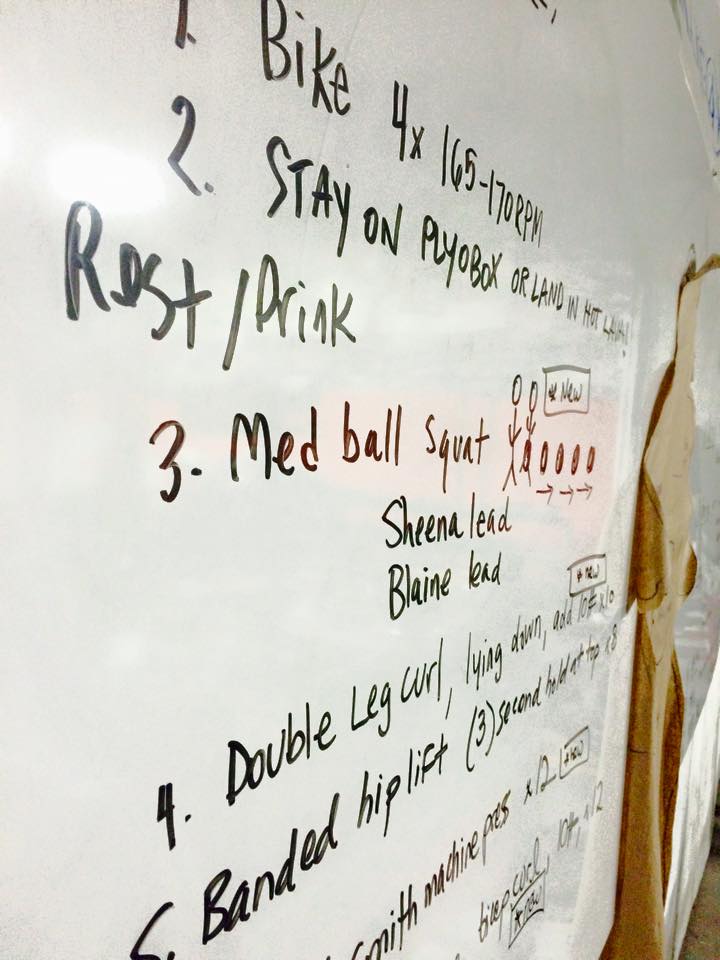 1. Bike 4x 165-170RPM
2. STAY ON PLYOBOX OR LAND IN HOT LAVA!
Rest/Drink
3. Med ball squat * New
Sheena lead
Blaine lead
4. Double Leg curl, lying down, add 10# x10 * new
5. Banded hip lift (3) second hold at top x8
smith machine press x12 * new
bicep curl, 10#, x12
* new